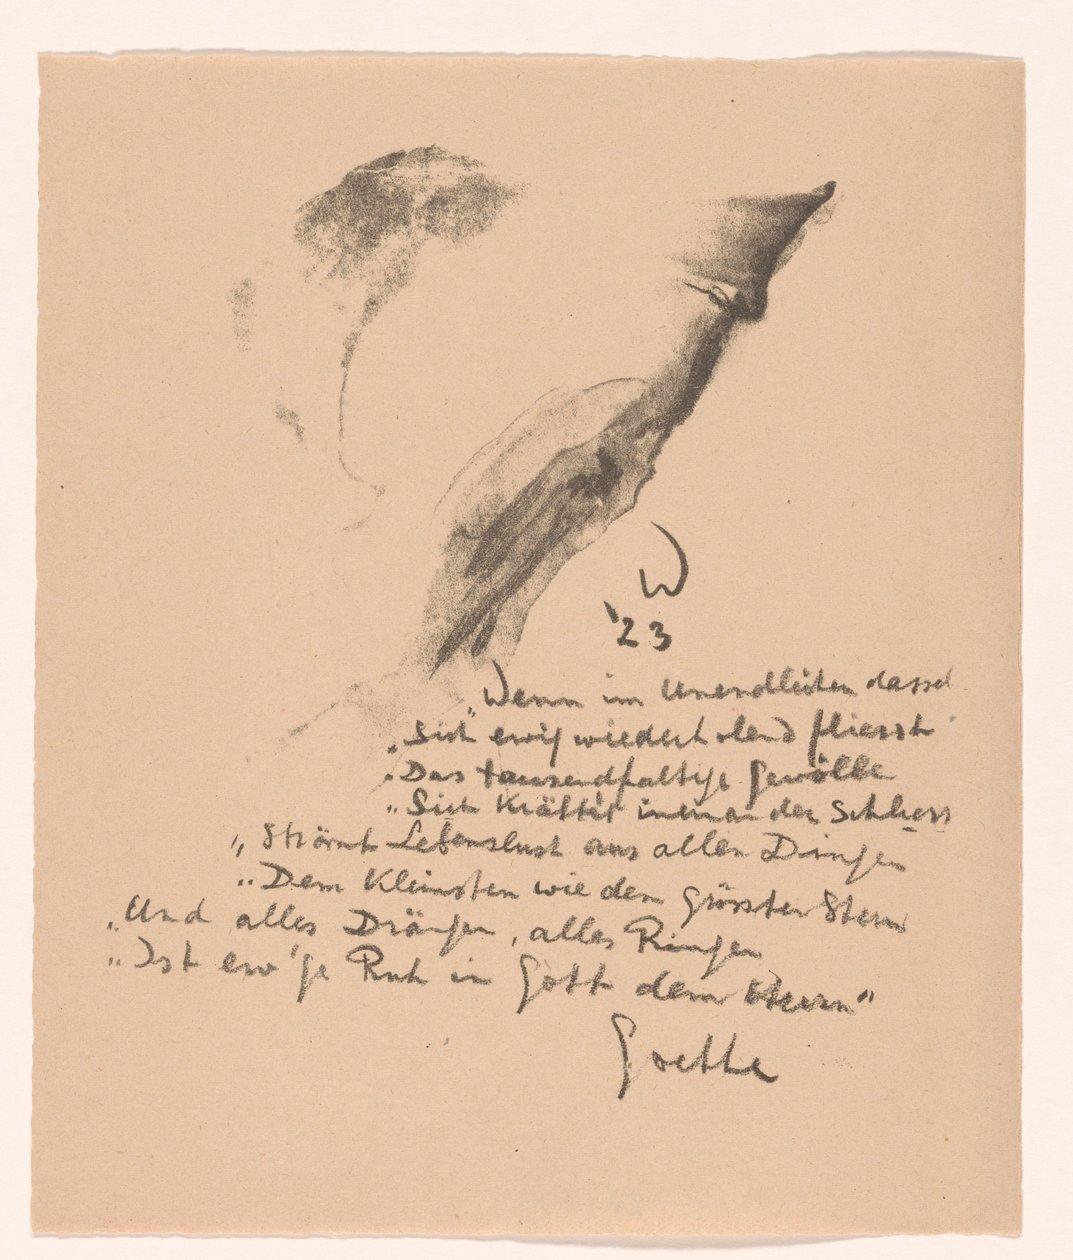 W
'23
„Wenn im Unendlichen dassel
„Sich ewig wiederholend fliesst
„Das tausendfaltige Gewölbe
„Sich Kräftig ineinander schliesst
„Strömt Lebenslust aus allen Dingen
„Dem Kleinsten wie dem grössten Stern
„Und alles Drängen, alles Ringen
„Ist ew'ge Ruh in Gott dem Herrn"
Goethe